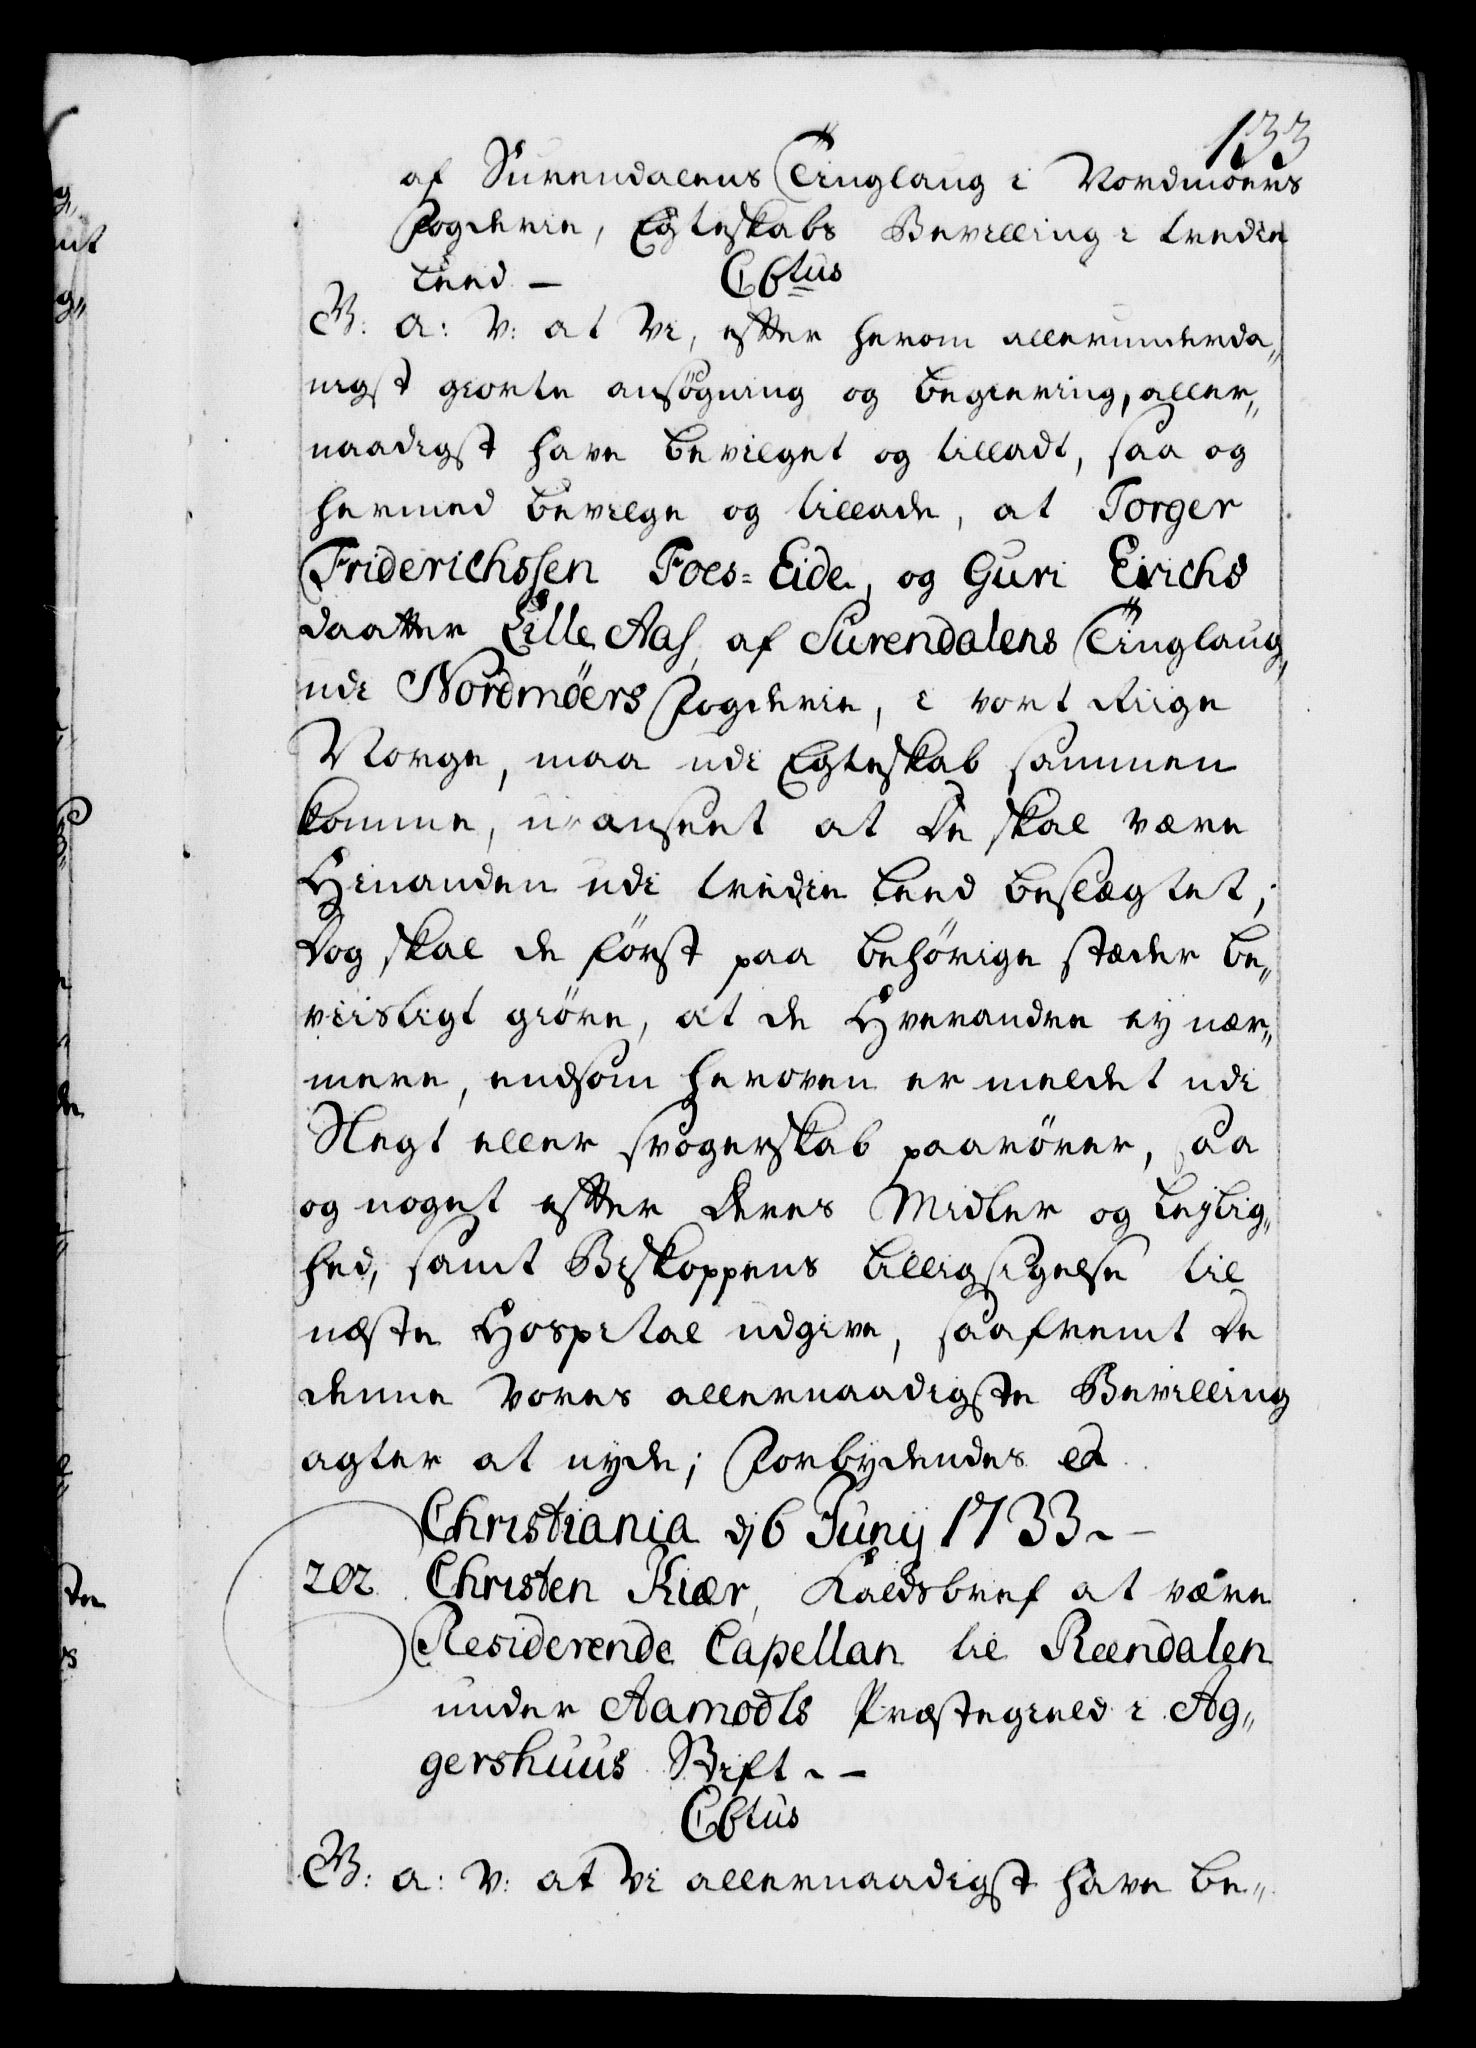 133
af Surendalens Tinglaug i Nordmoers
Fogderie, Egteskabs Bevilling i tredie
Leed — C6tus
G: a: V: at Vi, efter herom allerunderda„
nigst giorte ansögning og begiering, aller„
naadigst have bevilget og tilladt, saa og
hermed bevilge og tillade, at Torger
Friderichssen Foes-Eide, og Guri Erichs
daatter Lille Aas, af Surendalens Tinglaug,
udi Nordmöers Fogderie, i vort Riige
Norge, maa udi Egteskab sammen
komme, uanseet at De skal være
Hinanden udi tredie Leed beslægtet;
Dog skal de först paa behörige stæder be„
viisligt giöre, at de Hverandre ey nær„
mere, endsom heroven er meldet udi
Slegt eller svogerskab paarörer, saa
og noget efter Deres Midler og Lejlig„
hed, samt Biskoppens tilligsigelse til
næste Hospital udgive, saafremt De
denne Vores allernaadigste Bevilling
agter at nyde; Forbydendes et
Christiania dj 6 Junij 1733 —
202 Christen Kiær, Kaldsbref at være
Residerende Capellan til Reendalen
under Aamodts Præstegield i Ag„
gershuus Stift —
C6tus
G: a: V: at Vi allernaadigst have be„